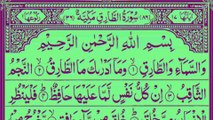 سُورَةُ الطَّارِقِ مَكِّيَّةٌ
بِسْمِ اللّٰهِ الرَّحْمٰنِ الرَّحِيْمِ
وَالسَّمَآءِ وَالطَّارِقِ ۙ وَمَآ اَدْرٰىكَ مَا الطَّارِقُ ۙ النَّجْمُ
الثَّاقِبُ ۙ اِنْ كُلُّ نَفْسٍ لَّمَّا عَلَيْهَا حَافِظٌ ؕ فَلْيَنْظُرِ